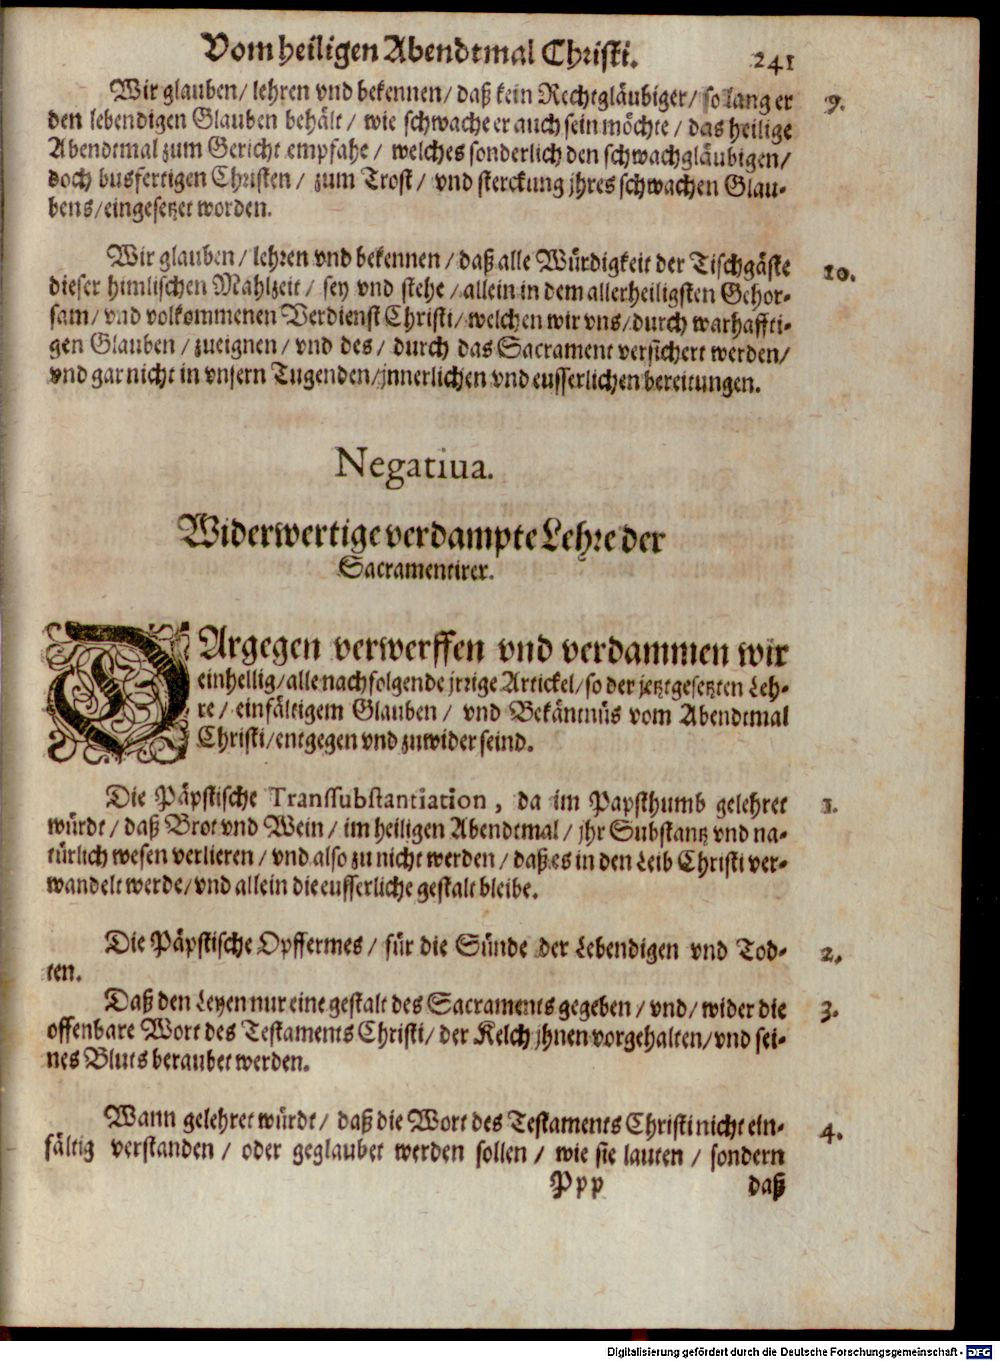 Vom heiligen Abendtmal Christi. 241
Wir glauben/ lehren vnd bekennen/ daß kein Rechtgläubiger/ so lang er 9.
den lebendigen Glauben behält/ wie schwache er auch sein möchte/ das heilige
Abendtmal zum Gericht empfahe/ welches sonderlich den schwachgläubigen/
doch busfertigen Christen/ zum Trost/ vnd sterckung jhres schwachen Glau-
bens/ eingesetzet worden.
Wir glauben/ lehren vnd bekennen/ daß alle Würdigkeit der Tischgäste 10.
dieser himlischen Mahlzeit/ sey vnd stehe/ allein in dem allerheiligsten Gehor-
sam/ vnd volkommenen Verdienst Christi/ welchen wir vns/ durch warhaffti-
gen Glauben/ zueignen/ vnd des/ durch das Sacrament versichert werden/
vnd gar nicht in vnsern Tugenden/ jnnerlichen vnd eusserlichen bereitungen.
Negatiua.
Widerwertige verdampte Lehre der
Sacramentirer.
DArgegen verwerffen vnd verdammen wir
einhellig/ alle nachfolgende jrrige Artickel/ so der jetztgesetzten Leh-
re/ einfältigem Glauben/ vnd Bekäntnüs vom Abendtmal
Christi/ entgegen vnd zuwider seind.
Die Päpstische Transsubstantiation, da im Papsthumb gelehret 1.
würdt/ daß Brot vnd Wein/ im heiligen Abendtmal/ jhr Substantz vnd na-
türlich wesen verlieren/ vnd also zu nicht werden/ daß es in den Leib Christi ver-
wandelt werde/ vnd allein die eusserliche gestalt bleibe.
Die Päpstische Opffermes/ für die Sünde der Lebendigen vnd Tod- 2.
ten.
Daß den Leyen nur eine gestalt des Sacraments gegeben/ vnd/ wider die 3.
offenbare Wort des Testaments Christi/ der Kelch jhnen vorgehalten/ vnd sei-
nes Bluts beraubet werden.
Wann gelehret würdt/ daß die Wort des Testaments Christi nicht ein- 4.
fältig verstanden/ oder geglaubet werden sollen/ wie sie lauten/ sondern
Ppp daß
Digitalisierung gefördert durch die Deutsche Forschungsgemeinschaft - DFG